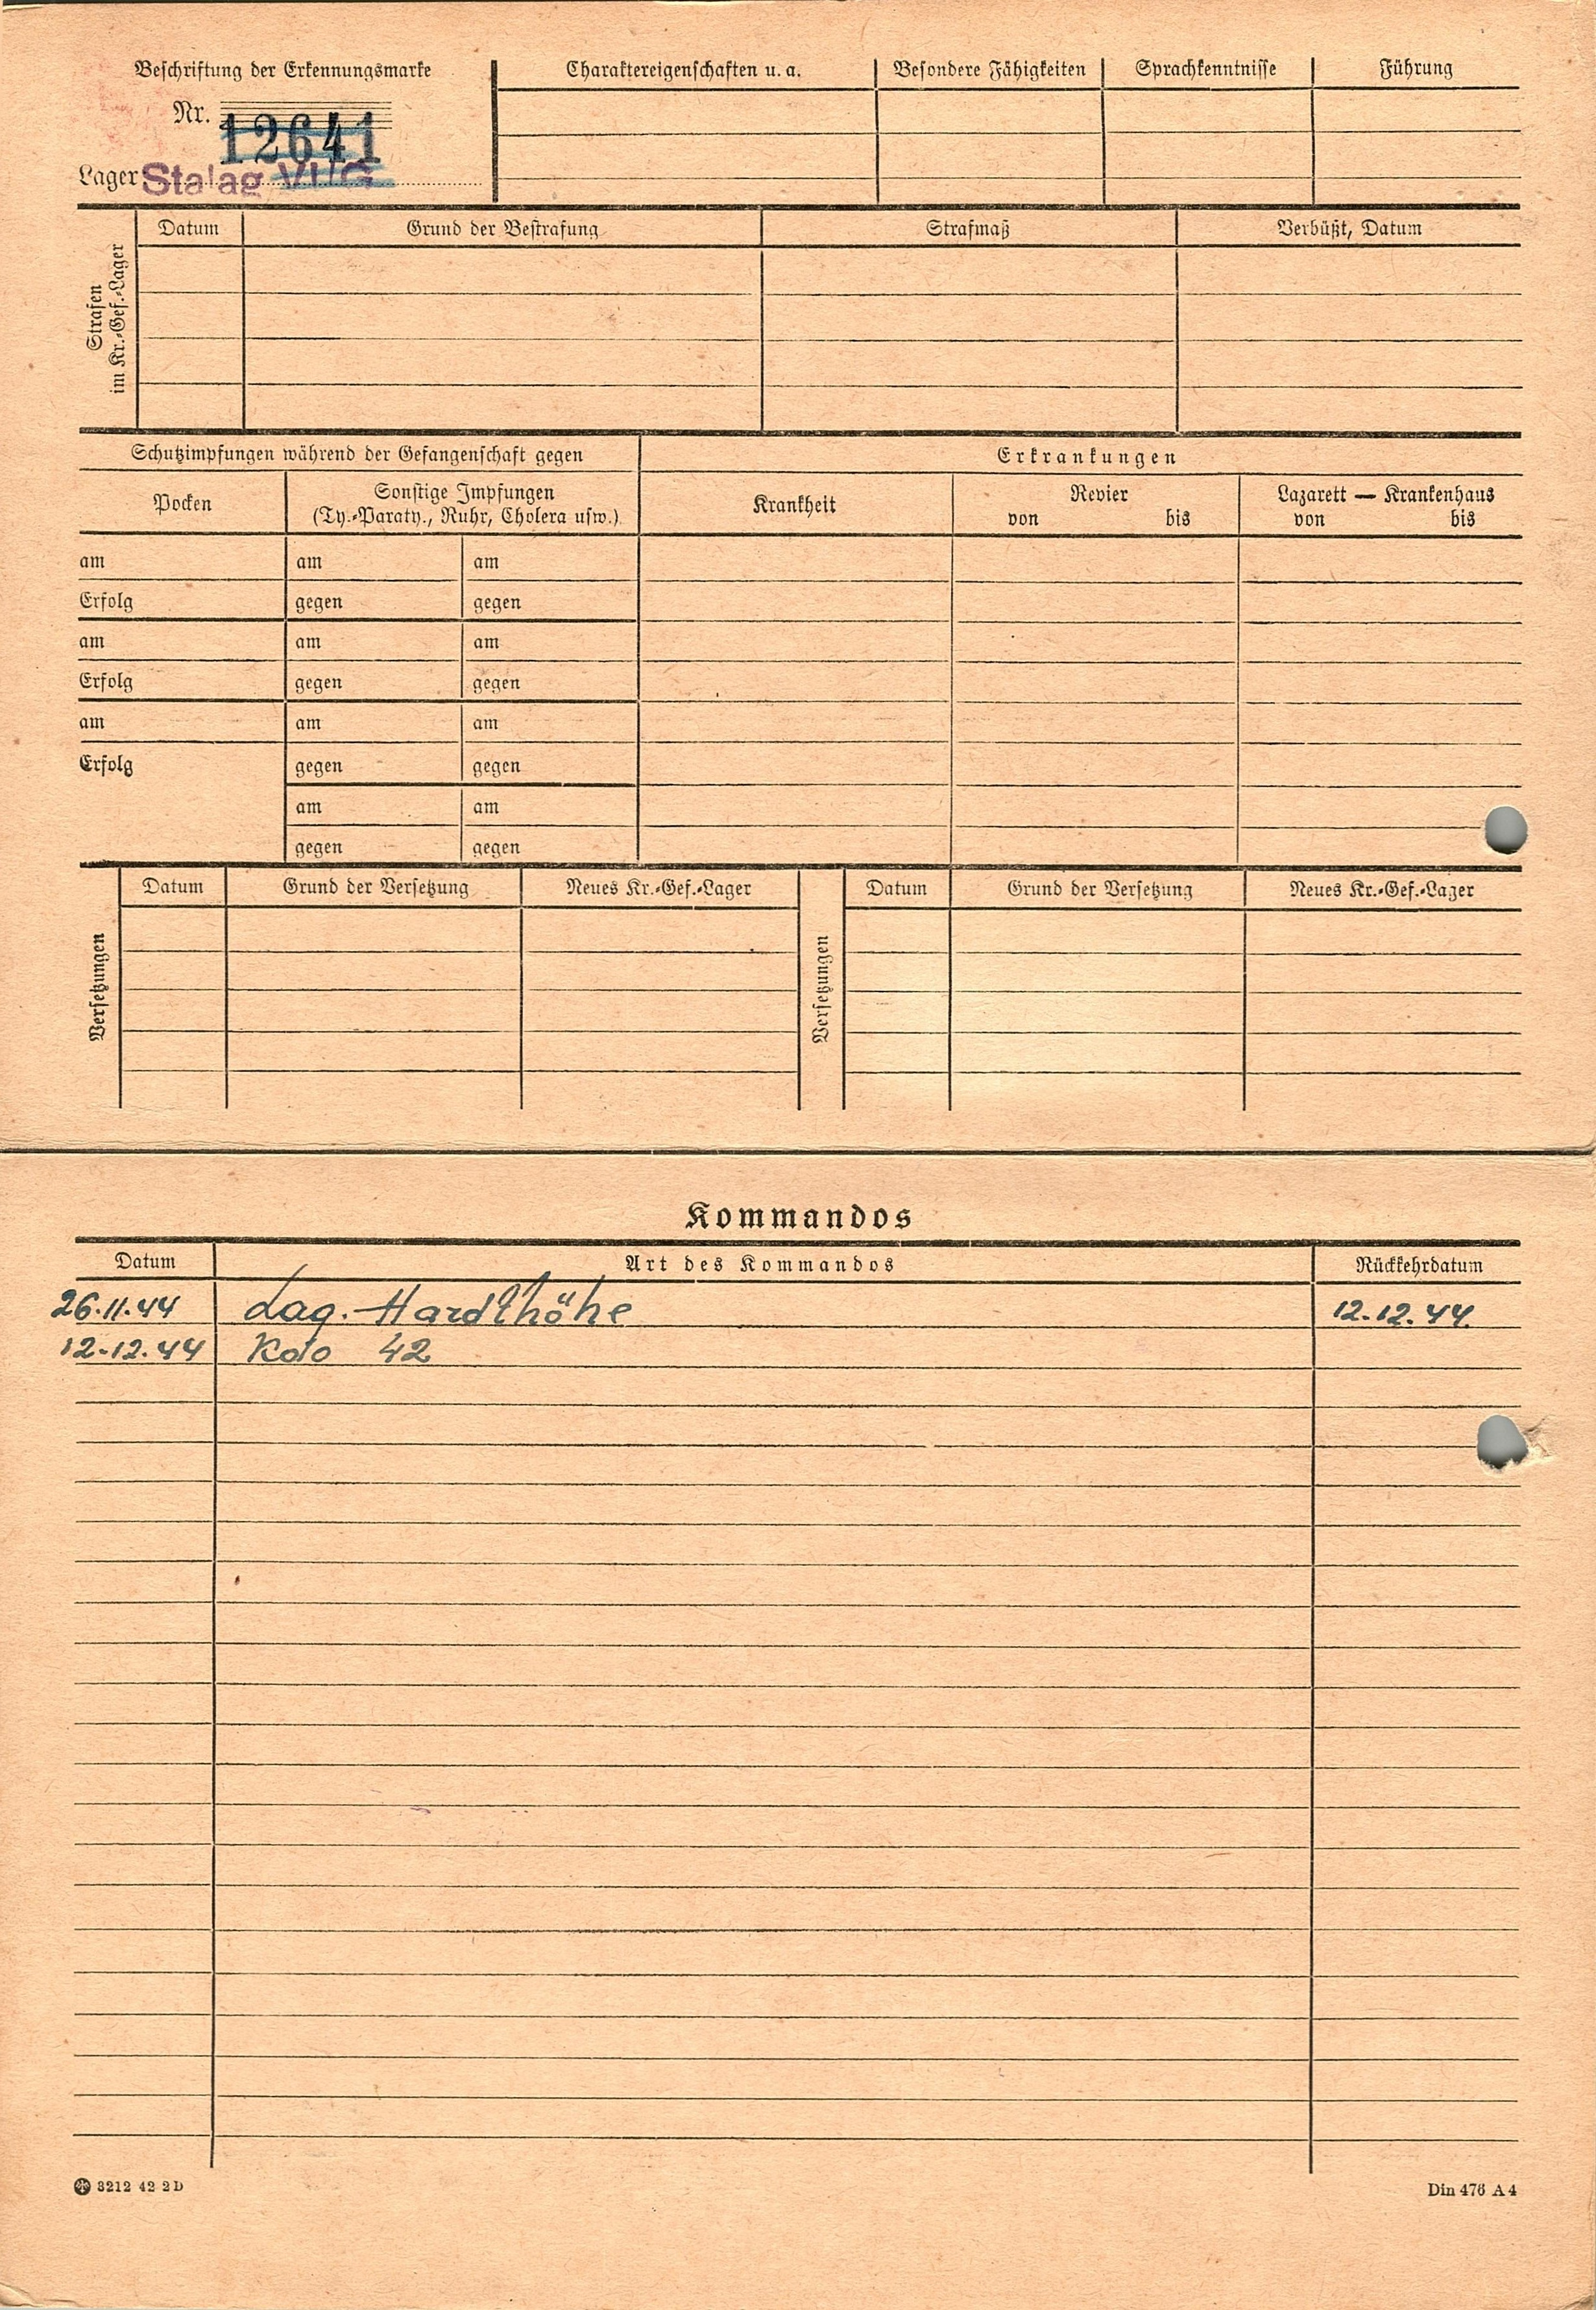 Beschriftung der Erkennungsmarke
Nr. 12641
Lager Stalag VI G
Charaktereigenschaften u. a. Besondere Fähigkeiten Sprachkenntnisse Führung
Strafen
im Kr.-Gef.-Lager
Datum Grund der Bestrafung Strafmaß Verbüßt, Datum
Schutzimpfungen während der Gefangenschaft gegen Erkrankungen
Pocken Sonstige Impfungen
(Ty.-Paraty., Ruhr, Cholera usw.)
Krankheit Revier Lazarett — Krankenhaus
von bis von bis
am am am
Erfolg gegen gegen
am am am
Erfolg gegen gegen
am am am
Erfolg gegen gegen
am am
gegen gegen
Versetzungen
Datum Grund der Versetzung Neues Kr.-Gef.-Lager
Versetzungen
Datum Grund der Versetzung Neues Kr.-Gef.-Lager
Kommandos
Datum Art des Kommandos Rückkehrdatum
26.11.44 Lag. Hardthöhe 12.12.44.
12.12.44 Kdo 42
3212 42 2 D
Din 476 A 4